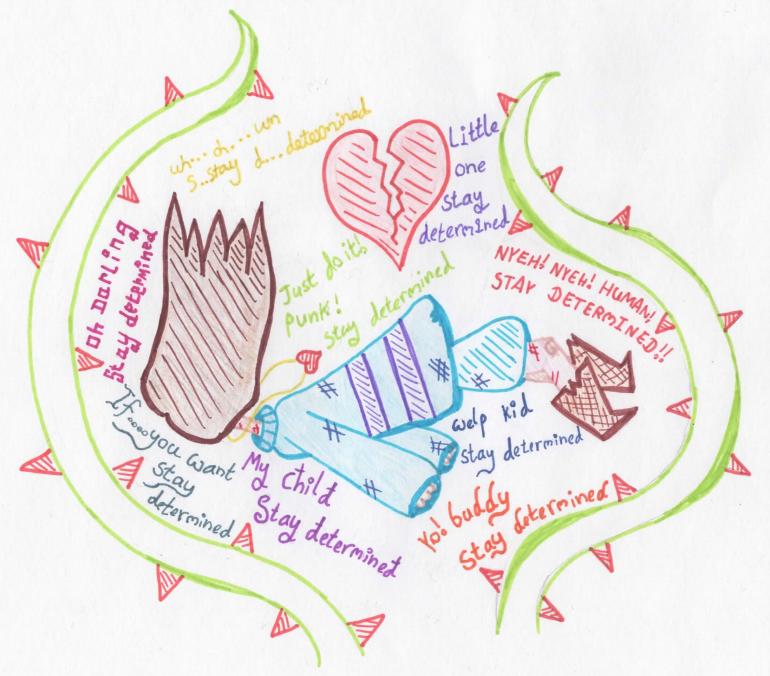 uh... oh... um
s..stay d... determined
Little
one
stay
determined
Oh Darling
stay determined
Just do it!
Punk!
stay determined
NYEH! NYEH! HUMAN!
STAY DETERMINED!!
If....you want
stay
determined
My child
Stay determined
welp kid
stay determined
Yo! buddy
Stay determined